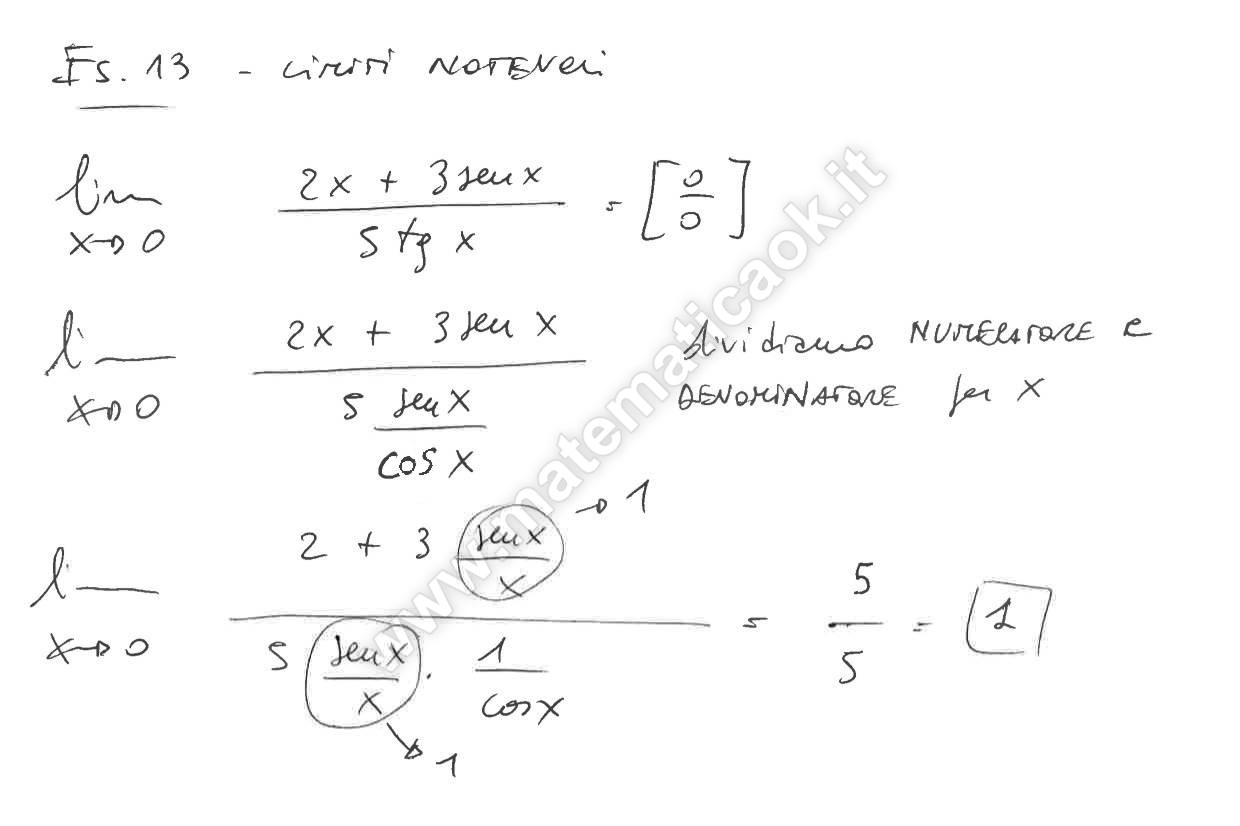 Es. 13 - LIMITI NOTEVOLI
lim x→0 (2x + 3 sen x) / (5 tg x) = [0/0]
lim x→0 (2x + 3 sen x) / (5 (sen x / cos x)) dividiamo NUMERATORE e
DENOMINATORE per x
lim x→0 (2 + 3 (sen x / x)) / (5 (sen x / x) · (1 / cos x)) = 5/5 = 1
→ 1
→ 1
www.matematicaok.it